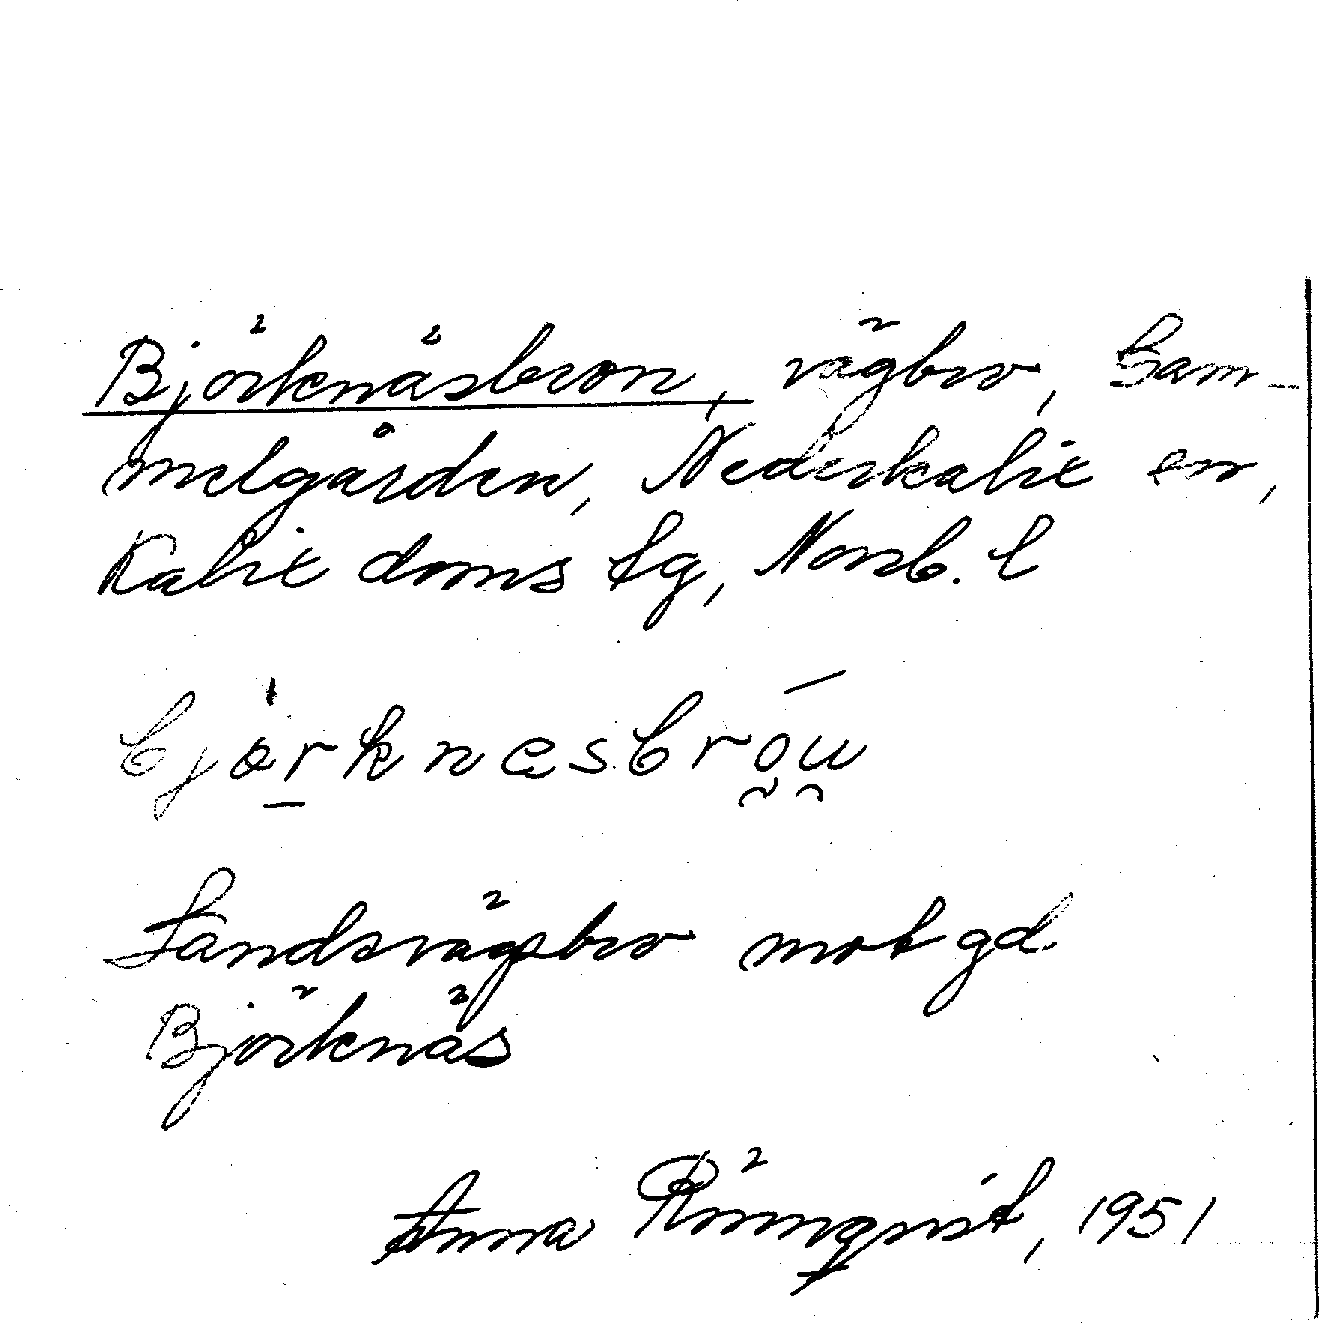 Björknäsbron, vägbro, Gam-
melgården, Nederkalix sn,
Kalix doms tg, Norrb. l
bjørknæsbrōu
Landsvägsbro mot gd.
Björknäs
Anna Rönnqvist, 1951